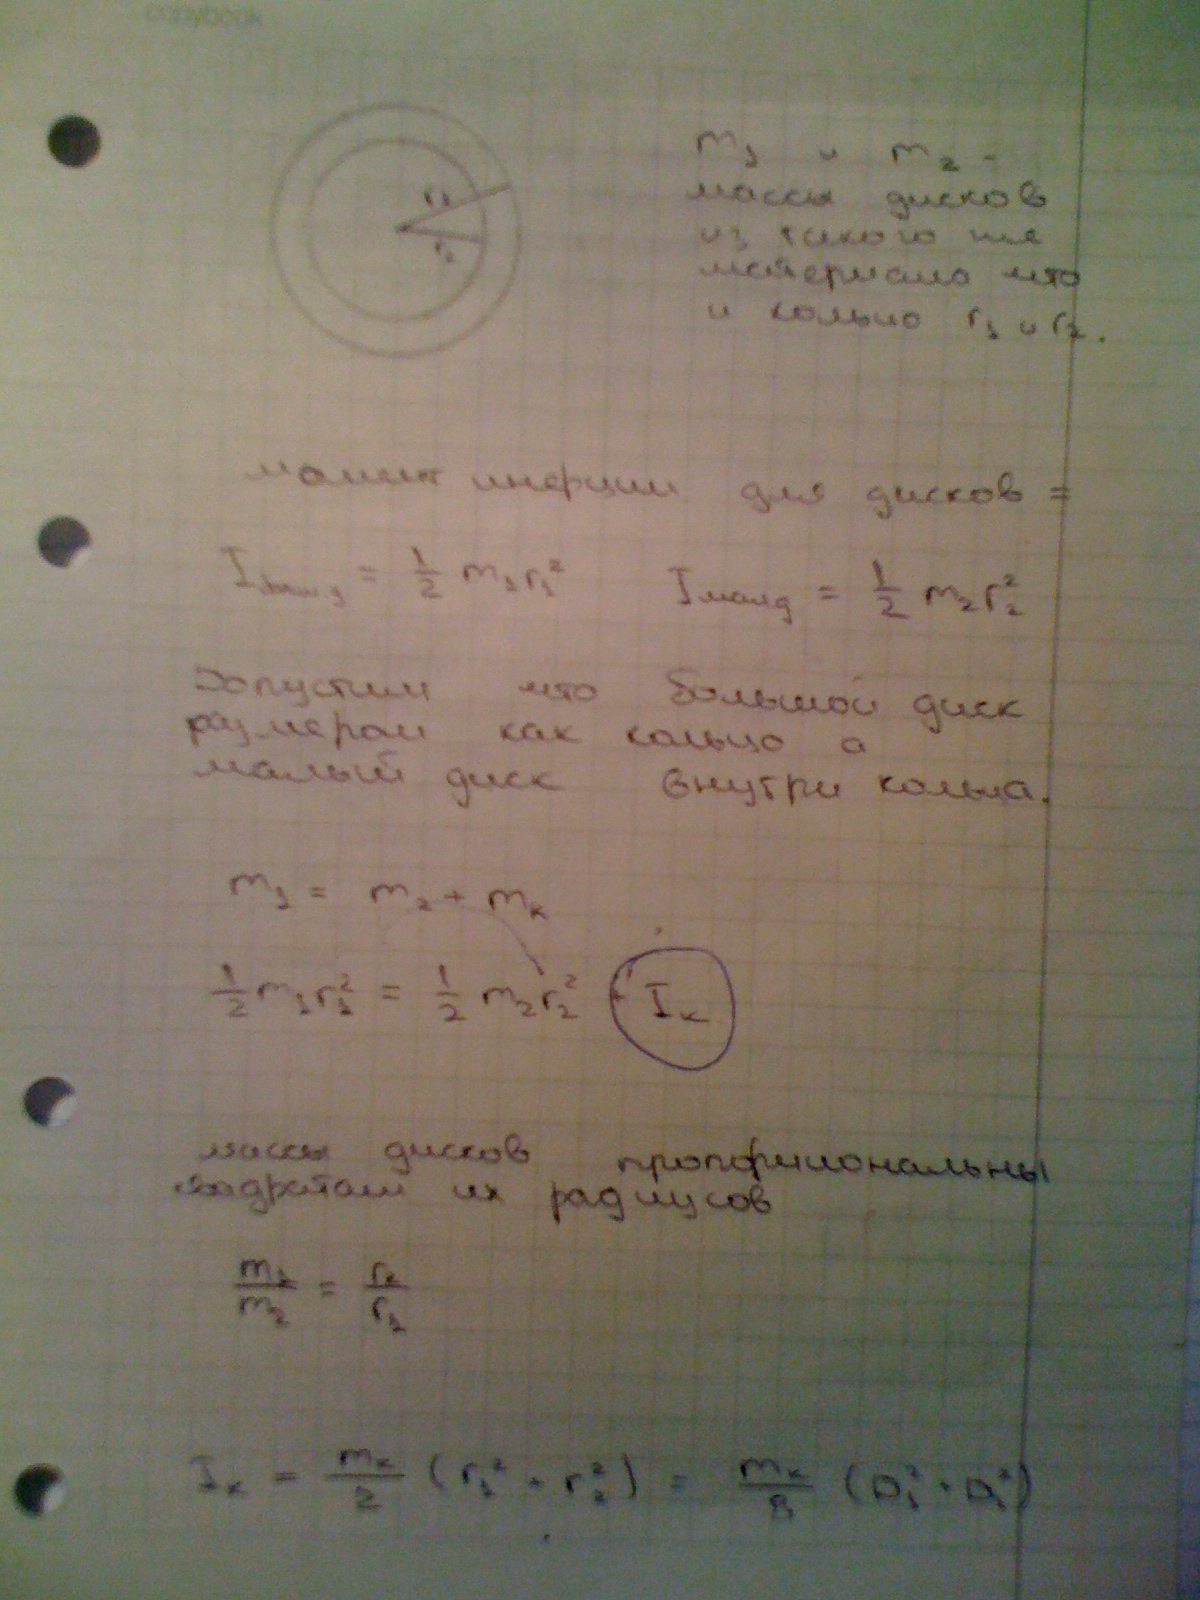 copybook
r₁
r₂
m₁ и m₂ -
массы дисков
из такого же
материала что
и кольцо r₁ и r₂.
момент инерции для дисков =
I = 1/2 m₁r₁² Iмалд = 1/2 m₂r₂²
Допустим что большой диск
размером как кольцо а
малый диск внутри кольца.
m₁ = m₂ + mк
1/2 m₁r₁² = 1/2 m₂r₂² + Iк
массы дисков пропорциональны
квадратам их радиусов
Iк = mк/2 (r₁² + r₂²) = mк/8 (D₁² + D₁²)